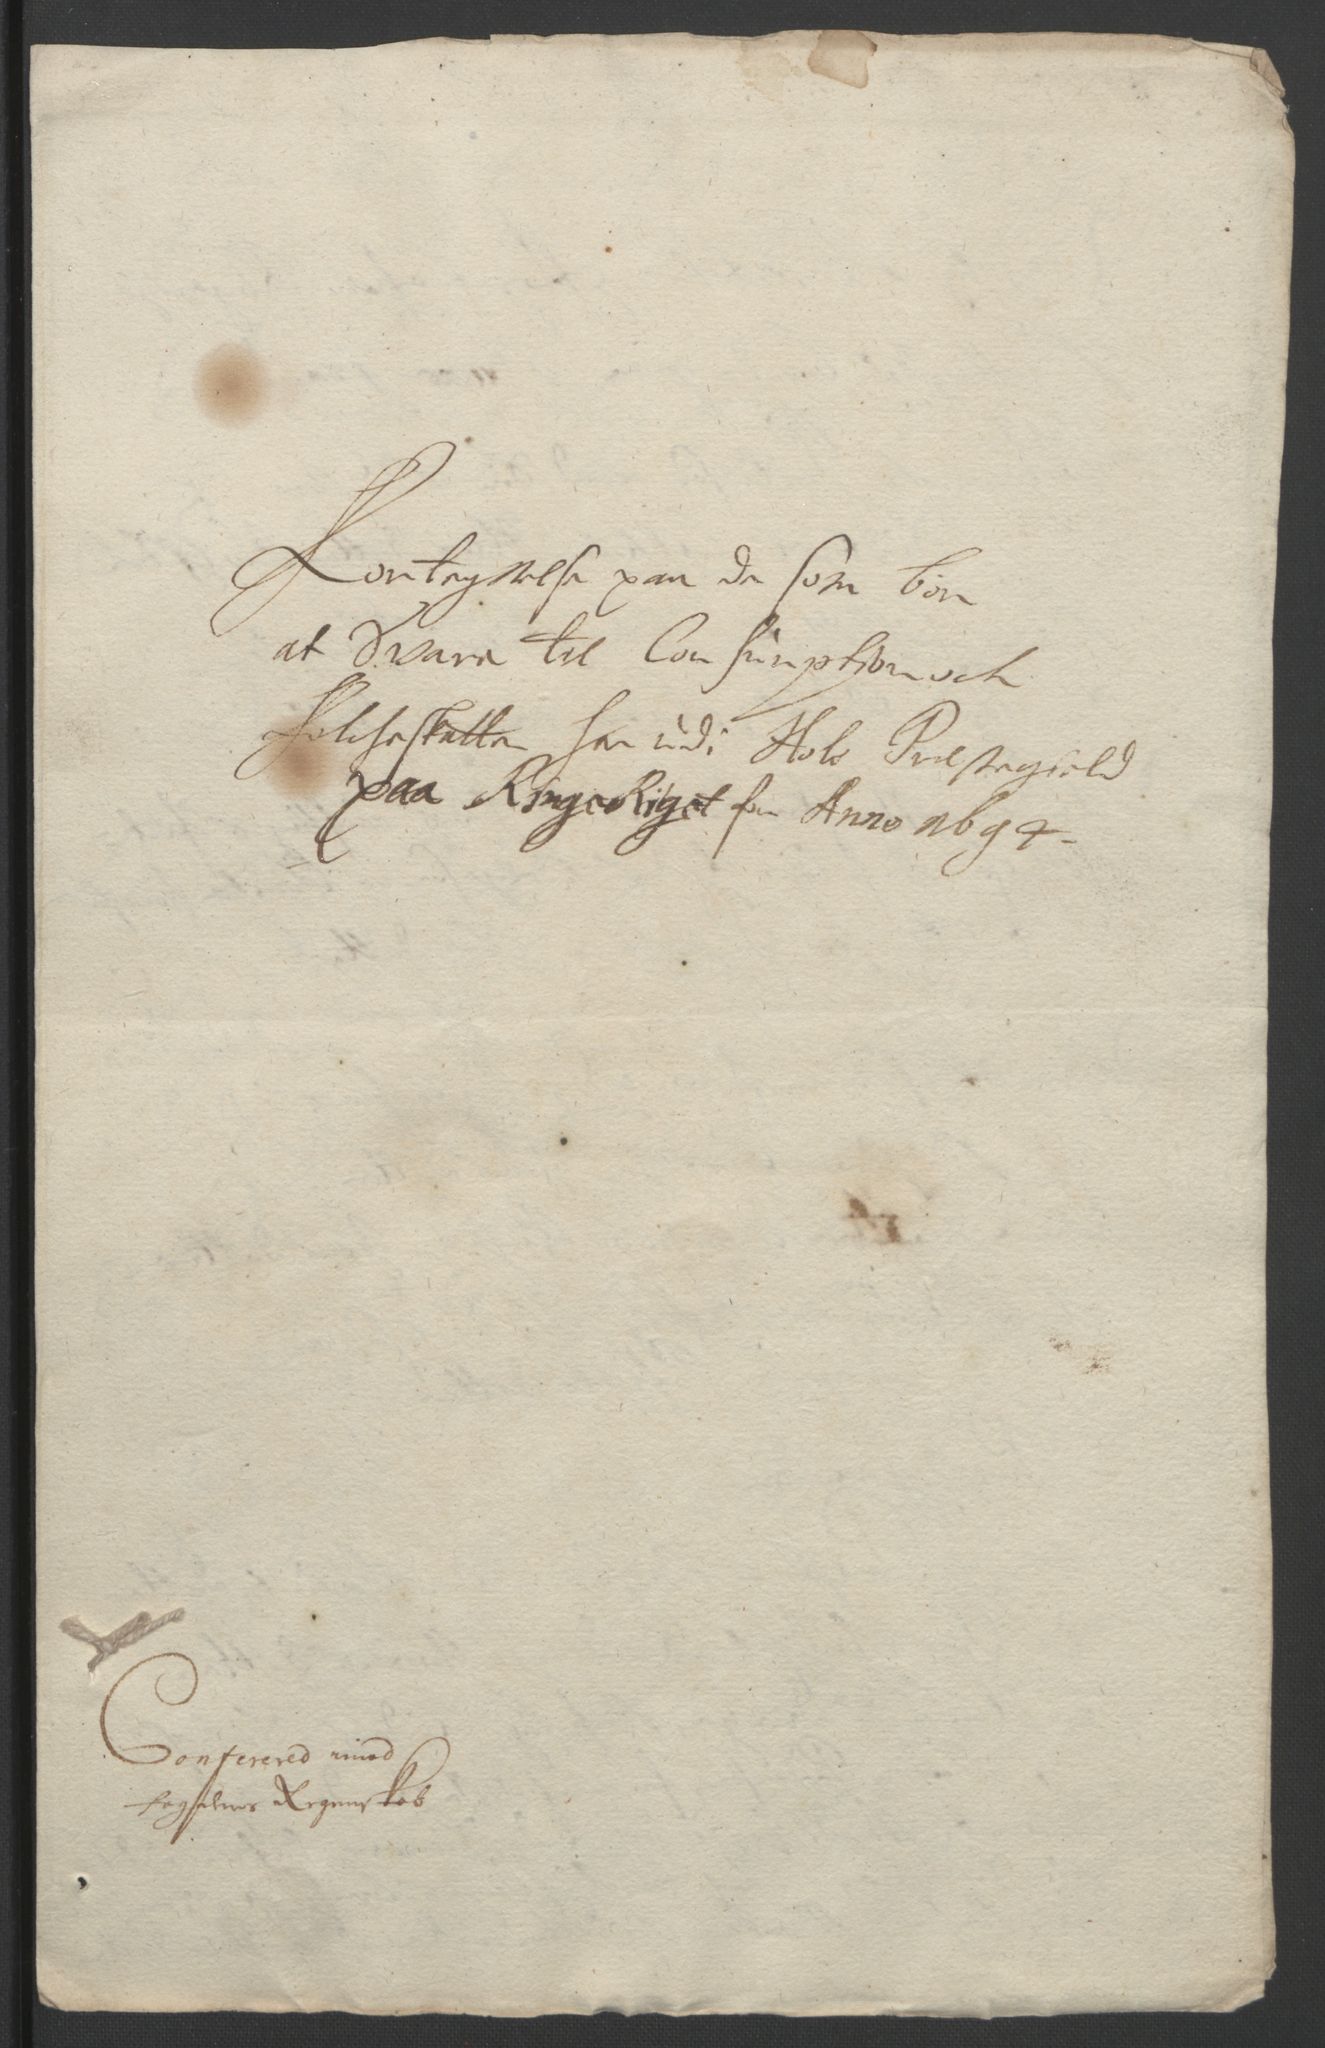 Forteignelse paa de som bør
at Svare til Consumptjon och
folcheskatten her udi Hole Prestegield
paa RingeRiget for Anno 1694-
Conferered med
fogdens Regenskab